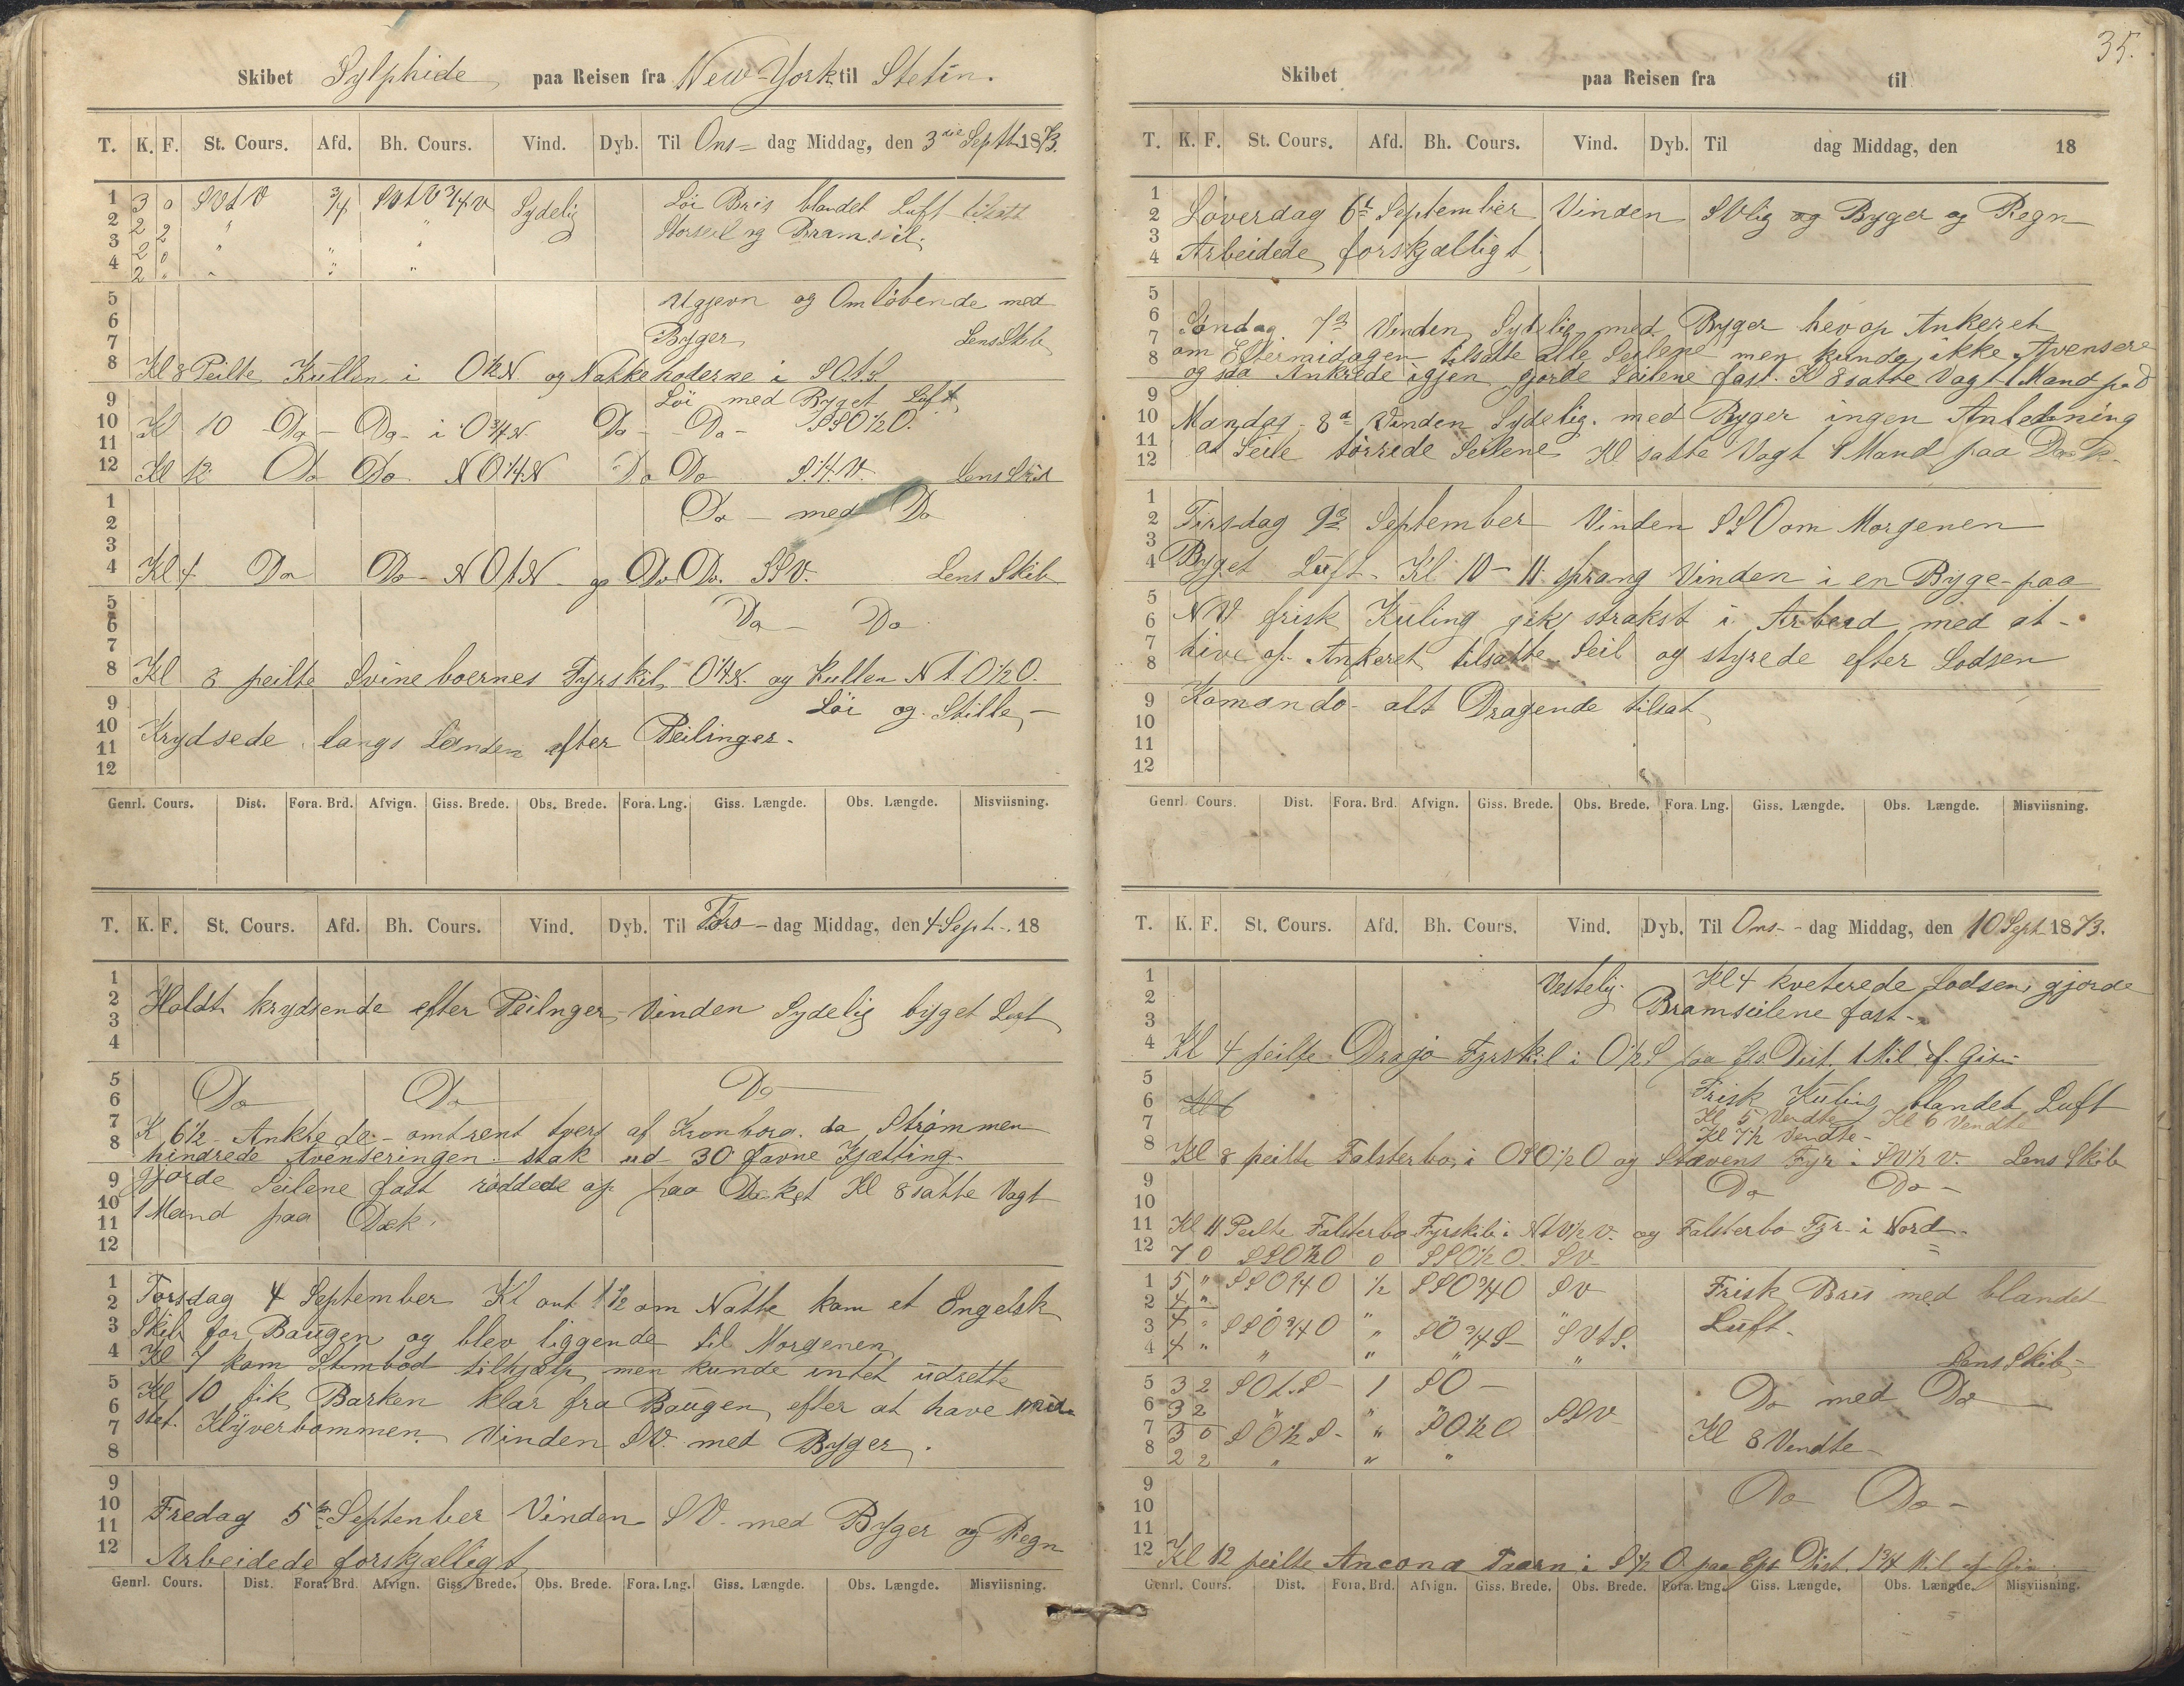 Skibet Sylphide paa Reisen fra New-York til Stetin.
T. K. F. St. Cours. Afd. Bh. Cours. Vind. Dyb. Til Ons= dag Middag, den 3die Septb. 1873.
1 3 0 SVtV 3/4 SVtV3/4V Sydelig Löi Bris blandet Luft tilsatt
2 2 2 " " Storseil og Bramseil.
3 2 0 " " "
4 2 " " " "
5 Ugjevn og Omlöbende med
6 Byger
7 Lens Skib
8 Kl 8 Peilte Kullen i O1/2N og Nakkehoderne i SOtS
9 Löi med Byget Luft
10 Kl 10 Do - Do - i O3/4N. Do - Do - SSO1/2O.
11
12 Kl 12 Do Do NO1/4N Do Do S1/4V. Lens Skib
1 Do - med Do
2
3
4 Kl 4 Do Do - NOtN - og Do Do. SSV. Lens Skib
5 Do - Do
6
7
8 Kl 8 peilte Svineboernes Fyrskib O1/4N. og Kullen NtO1/2O.
9 Löi og Stille, -
10 Krydsede langs Landen efter Peilinger.
11
12
Genrl. Cours. Dist. Fora. Brd. Afvign. Giss. Brede. Obs. Brede. Fora. Lng. Giss. Længde. Obs. Længde. Misviisning.
T. K. F. St. Cours. Afd. Bh. Cours. Vind. Dyb. Til Tors - dag Middag, den 4 Sept. 18
1
2 Holdt krydsende efter Peilnger, Vinden Sydelig byget Luft
3
4
5 Do Do Do
6
7 K 6 1/2 - Ankrede - omtrent tvers af Kronborg. da Strömmen
8 hindrede Avenseringen. stak ud 30 favne Kjætting.
9 Gjorde Seilene fast röddede op paa Deket Kl 8 satte Vagt
10 1 Mand paa Dæk.
11
12
1 Torsdag 4 September Kl omt 1 1/2 om Natte kom et Engelsk
2 Skib for Baugen og blev liggende til Morgenen
3 Kl 7 kom Stimbod tilhjælp, men kunde intet udrette
4 Kl 10 fik Barken klar fra Baugen, efter at have mis-
5 stet. Klyverbommen Vinden SV. med Byger.
6
7
8
9 Fredag 5te September Vinden SV. med Byger og Regn
10 Arbeidede forskjælligt
11
12
Genrl. Cours. Dist. Fora. Brd. Afvign. Giss. Brede. Obs. Brede. Fora. Lng. Giss. Længde. Obs. Længde. Misviisning.
35.
Skibet paa Reisen fra til
T. K. F. St. Cours. Afd. Bh. Cours. Vind. Dyb. Til dag Middag, den 18
1
2 Löverdag 6t September Vinden SVlig og Byger og Regn
3 Arbeidede forskjælligt
4
5
6 Söndag 7d Vinden Sydelig med Byger hev op Ankeret
7 om Eftermidagen tilsatte alle Seilene men kunde ikke Avensere
8 og saa Ankrede igjen gjorde Seilene fast. Kl 8 satte Vagt 1 Mand paa D
9
10 Mandag 8d Vinden Sydelig. med Byger ingen Anledning
11 at Seile törrede Seilene Kl satte Vagt 1 Mand paa Dæk.
12
1
2 Tirsdag 9d September Vinden SSO om Morgenen
3
4 Byget Luft. Kl 10-11 sprang Vinden i en Byge - paa
5
6 NV frisk Kuling gik strakst i Arbeid med at -
7
8 hive op Ankeret tilsatte Seil og styrede efter Lodsen
9 Komando - alt Dragende tilsat
10
11
12
Genrl. Cours. Dist. Fora. Brd. Afvign. Giss. Brede. Obs. Brede. Fora. Lng. Giss. Længde. Obs. Længde. Misviisning.
T. K. F. St. Cours. Afd. Bh. Cours. Vind. Dyb. Til Ons - dag Middag, den 10 Sept 1873.
1 Vestelig Kl 4 kveterede Lodsen, gjorde
2 Bramseilene fast -
3
4 Kl 4 peilte Dragö Fyrskib i O1/2S paa Gs Dist. 1 Mil af Giss
5 Frisk Kuling blandet Luft
6 Kl 6 Kl 5 Vendte Kl 6 Vendte
7 Kl 7 1/2 Vendte -
8 Kl 8 peilte Falsterbo i OSO1/2O og Stævens Fyr i SV1/2V. Lens Skib
9 Do Do -
10
11 Kl 11 Peilte Falsterbo Fyrskib i NtV1/2V. og Falsterbo Fyr i Nord
12 7 0 SSO1/2O 0 SSO1/2O SV
1 5 " SSO3/4O 1/2 SSO3/4O SV Frisk Bris med blandet
2 4 " Luft -
3 4 " SSO3/4O " SO3/4S SVtS.
4 4 " " " " " Lens Skib -
5 3 2 SOt.S 1 SO - Do med Do
6 3 2 " " SSV
7 3 0 SO1/2S " SO1/2O Kl 8 Vendte -
8 2 2 " " "
9 Do Do -
10
11
12 Kl 12 peilte Ancona Taarn i S1/2O paa Gs Dist. 1 3/4 Mil af Gis
Genrl. Cours. Dist. Fora. Brd. Afvign. Giss. Brede. Obs. Brede. Fora. Lng. Giss. Længde. Obs. Længde. Misviisning.